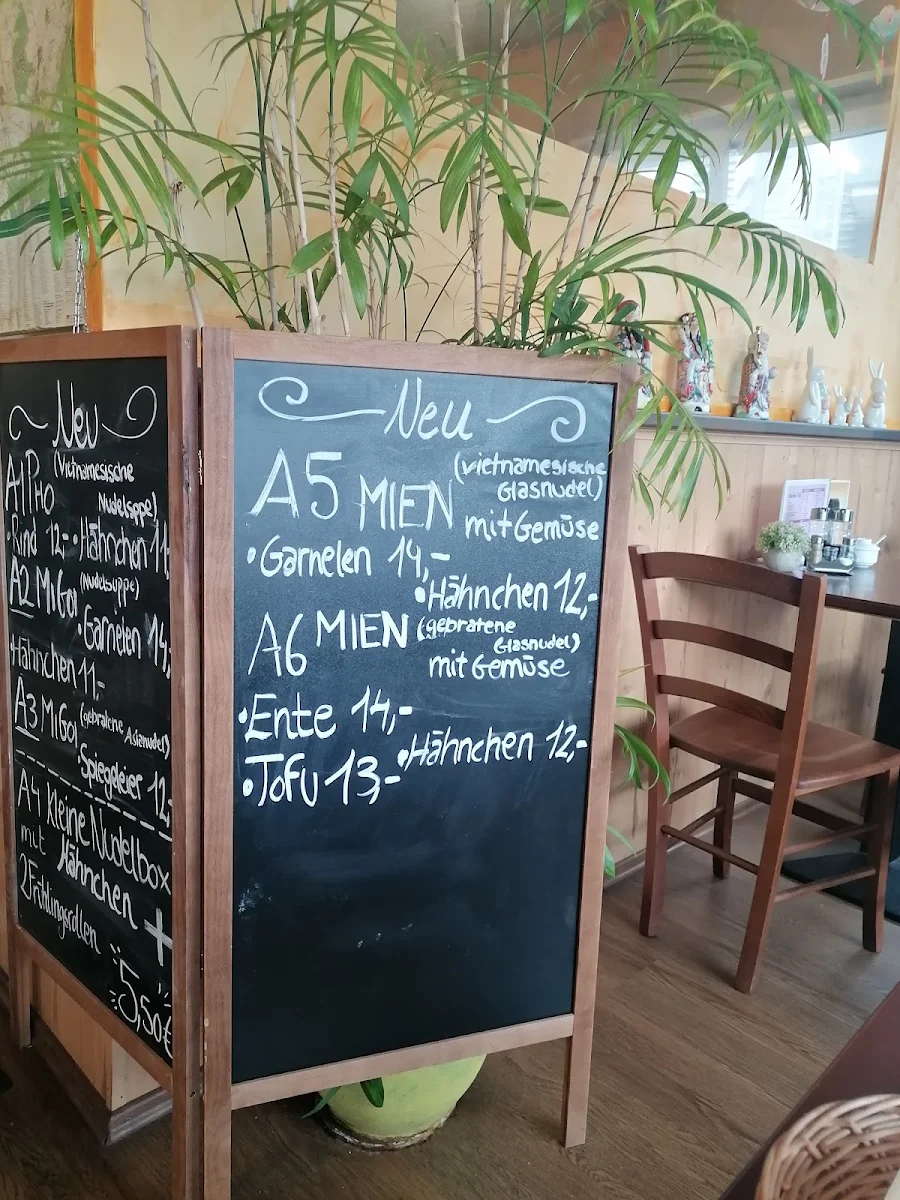 Neu
A1 PHO (Vietnamesische
Nudelsppe)
• Rind 12,- • Hähnchen 11,
A2 MiGoi (Nudelsuppe)
• Garnelen 14,
Hähnchen 11,-
A3 MiGoi (gebratene Asianudel)
• Spiegeleier 12,
A4 Kleine Nudelbox
mit Hähnchen +
2 Frühlingsrollen
5,50€
Neu
A5 MIEN (vietnamesische
Glasnudel)
mit Gemüse
• Garnelen 14,-
• Hähnchen 12,-
A6 MIEN (gebratene
Glasnudel)
mit Gemüse
• Ente 14,-
• Hähnchen 12,-
• Tofu 13,-